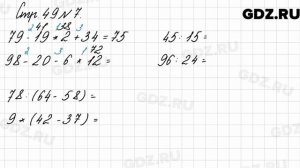 GDZ.RU
Стр. 49 N 7.
41 38
2 1 3
79 - 19 * 2 + 34 = 75
45 : 15 =
2 3 1 72
98 - 20 - 6 * 12 =
96 : 24 =
78 : (64 - 58) =
9 * (42 - 37) =
GDZ.RU